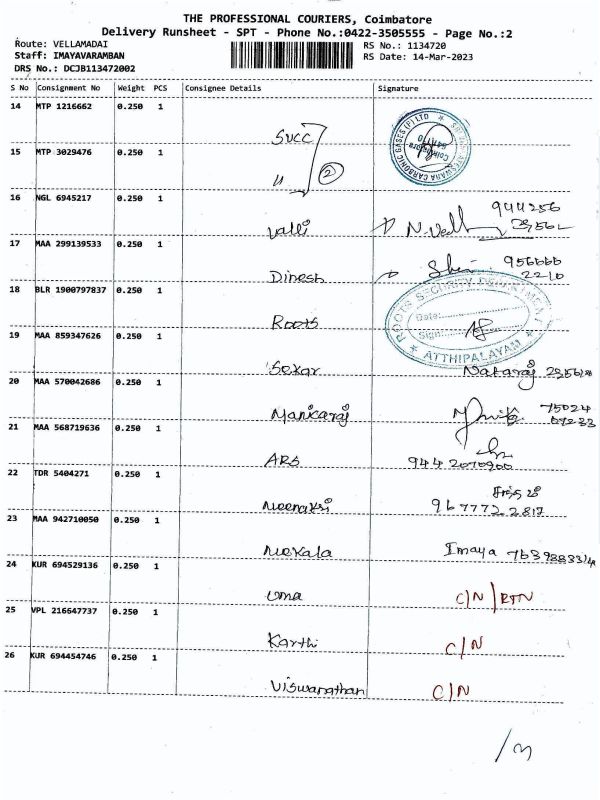 THE PROFESSIONAL COURIERS, Coimbatore
Delivery Runsheet - SPT - Phone No.:0422-3505555 - Page No.:2
Route: VELLAMADAI
Staff: IMAYAVARAMBAN
DRS No.: DCJB113472002
RS No.: 1134720
RS Date: 14-Mar-2023
S No Consignment No Weight PCS Consignee Details Signature
14 MTP 1216662 0.250 1
SVCC
15 MTP 3029476 0.250 1
11 2
16 NGL 6945217 0.250 1
Valli N.Vell 944256
17 MAA 299139533 0.250 1
Dinesh 956666 2210
18 BLR 1900797837 0.250 1
Roots
ROOTS SECURITY DEPARTMENT
Date:
Sign:
ATTHIPALAYAM
19 MAA 859347626 0.250 1
Sekar Nataraj
20 MAA 570042686 0.250 1
Manicaraj 75024
21 MAA 568719636 0.250 1
ARS 9442070900
22 TDR 5404271 0.250 1
Meenakshi 967772 2817
23 MAA 942710050 0.250 1
Mekala Imaya
24 KUR 694529136 0.250 1
Uma C/N/RTN
25 VPL 216647737 0.250 1
Karthi C/N
26 KUR 694454746 0.250 1
Viswanathan C/N